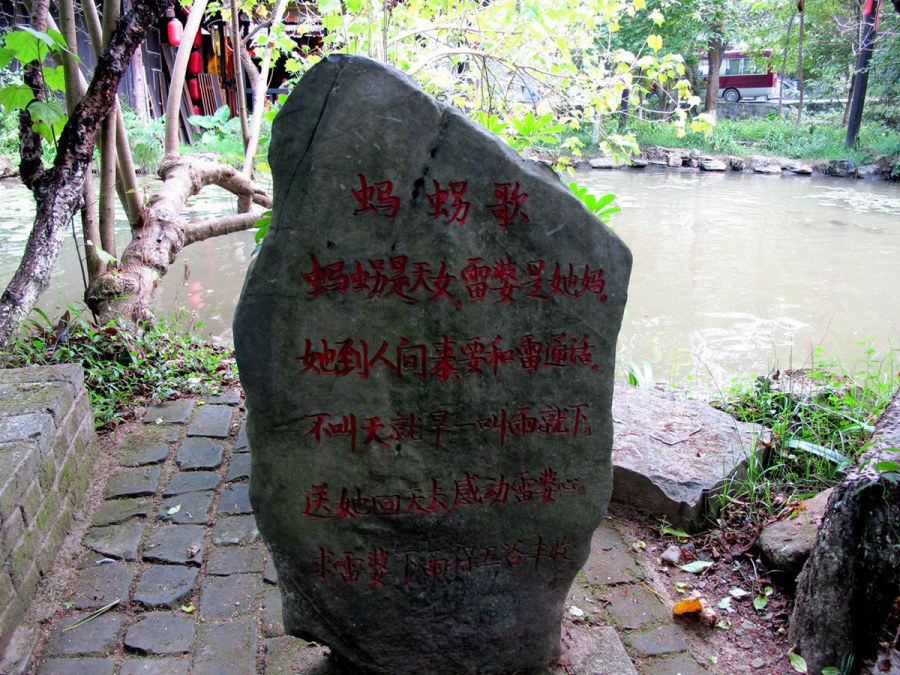 蚂蜴歌
蚂蜴是天女,雷婆是她妈。
她到人间来,要和雷通话。
不叫天就旱一叫雨就下。
送她回天去感动雷婆心。
求雷婆下雨保五谷丰收